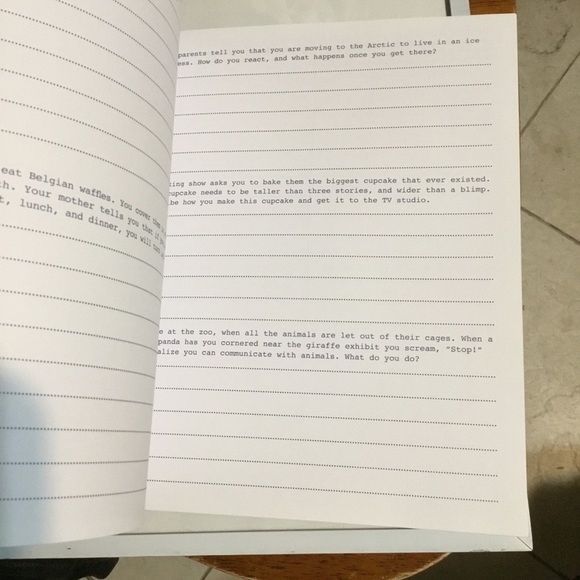 eat Belgian waffles. You cover the
th. Your mother tells you that if you
t, lunch, and dinner, you will turn
parents tell you that you are moving to the Arctic to live in an ice
ess. How do you react, and what happens once you get there?
ting show asks you to bake them the biggest cupcake that ever existed.
upcake needs to be taller than three stories, and wider than a blimp.
be how you make this cupcake and get it to the TV studio.
e at the zoo, when all the animals are let out of their cages. When a
panda has you cornered near the giraffe exhibit you scream, "Stop!"
alize you can communicate with animals. What do you do?